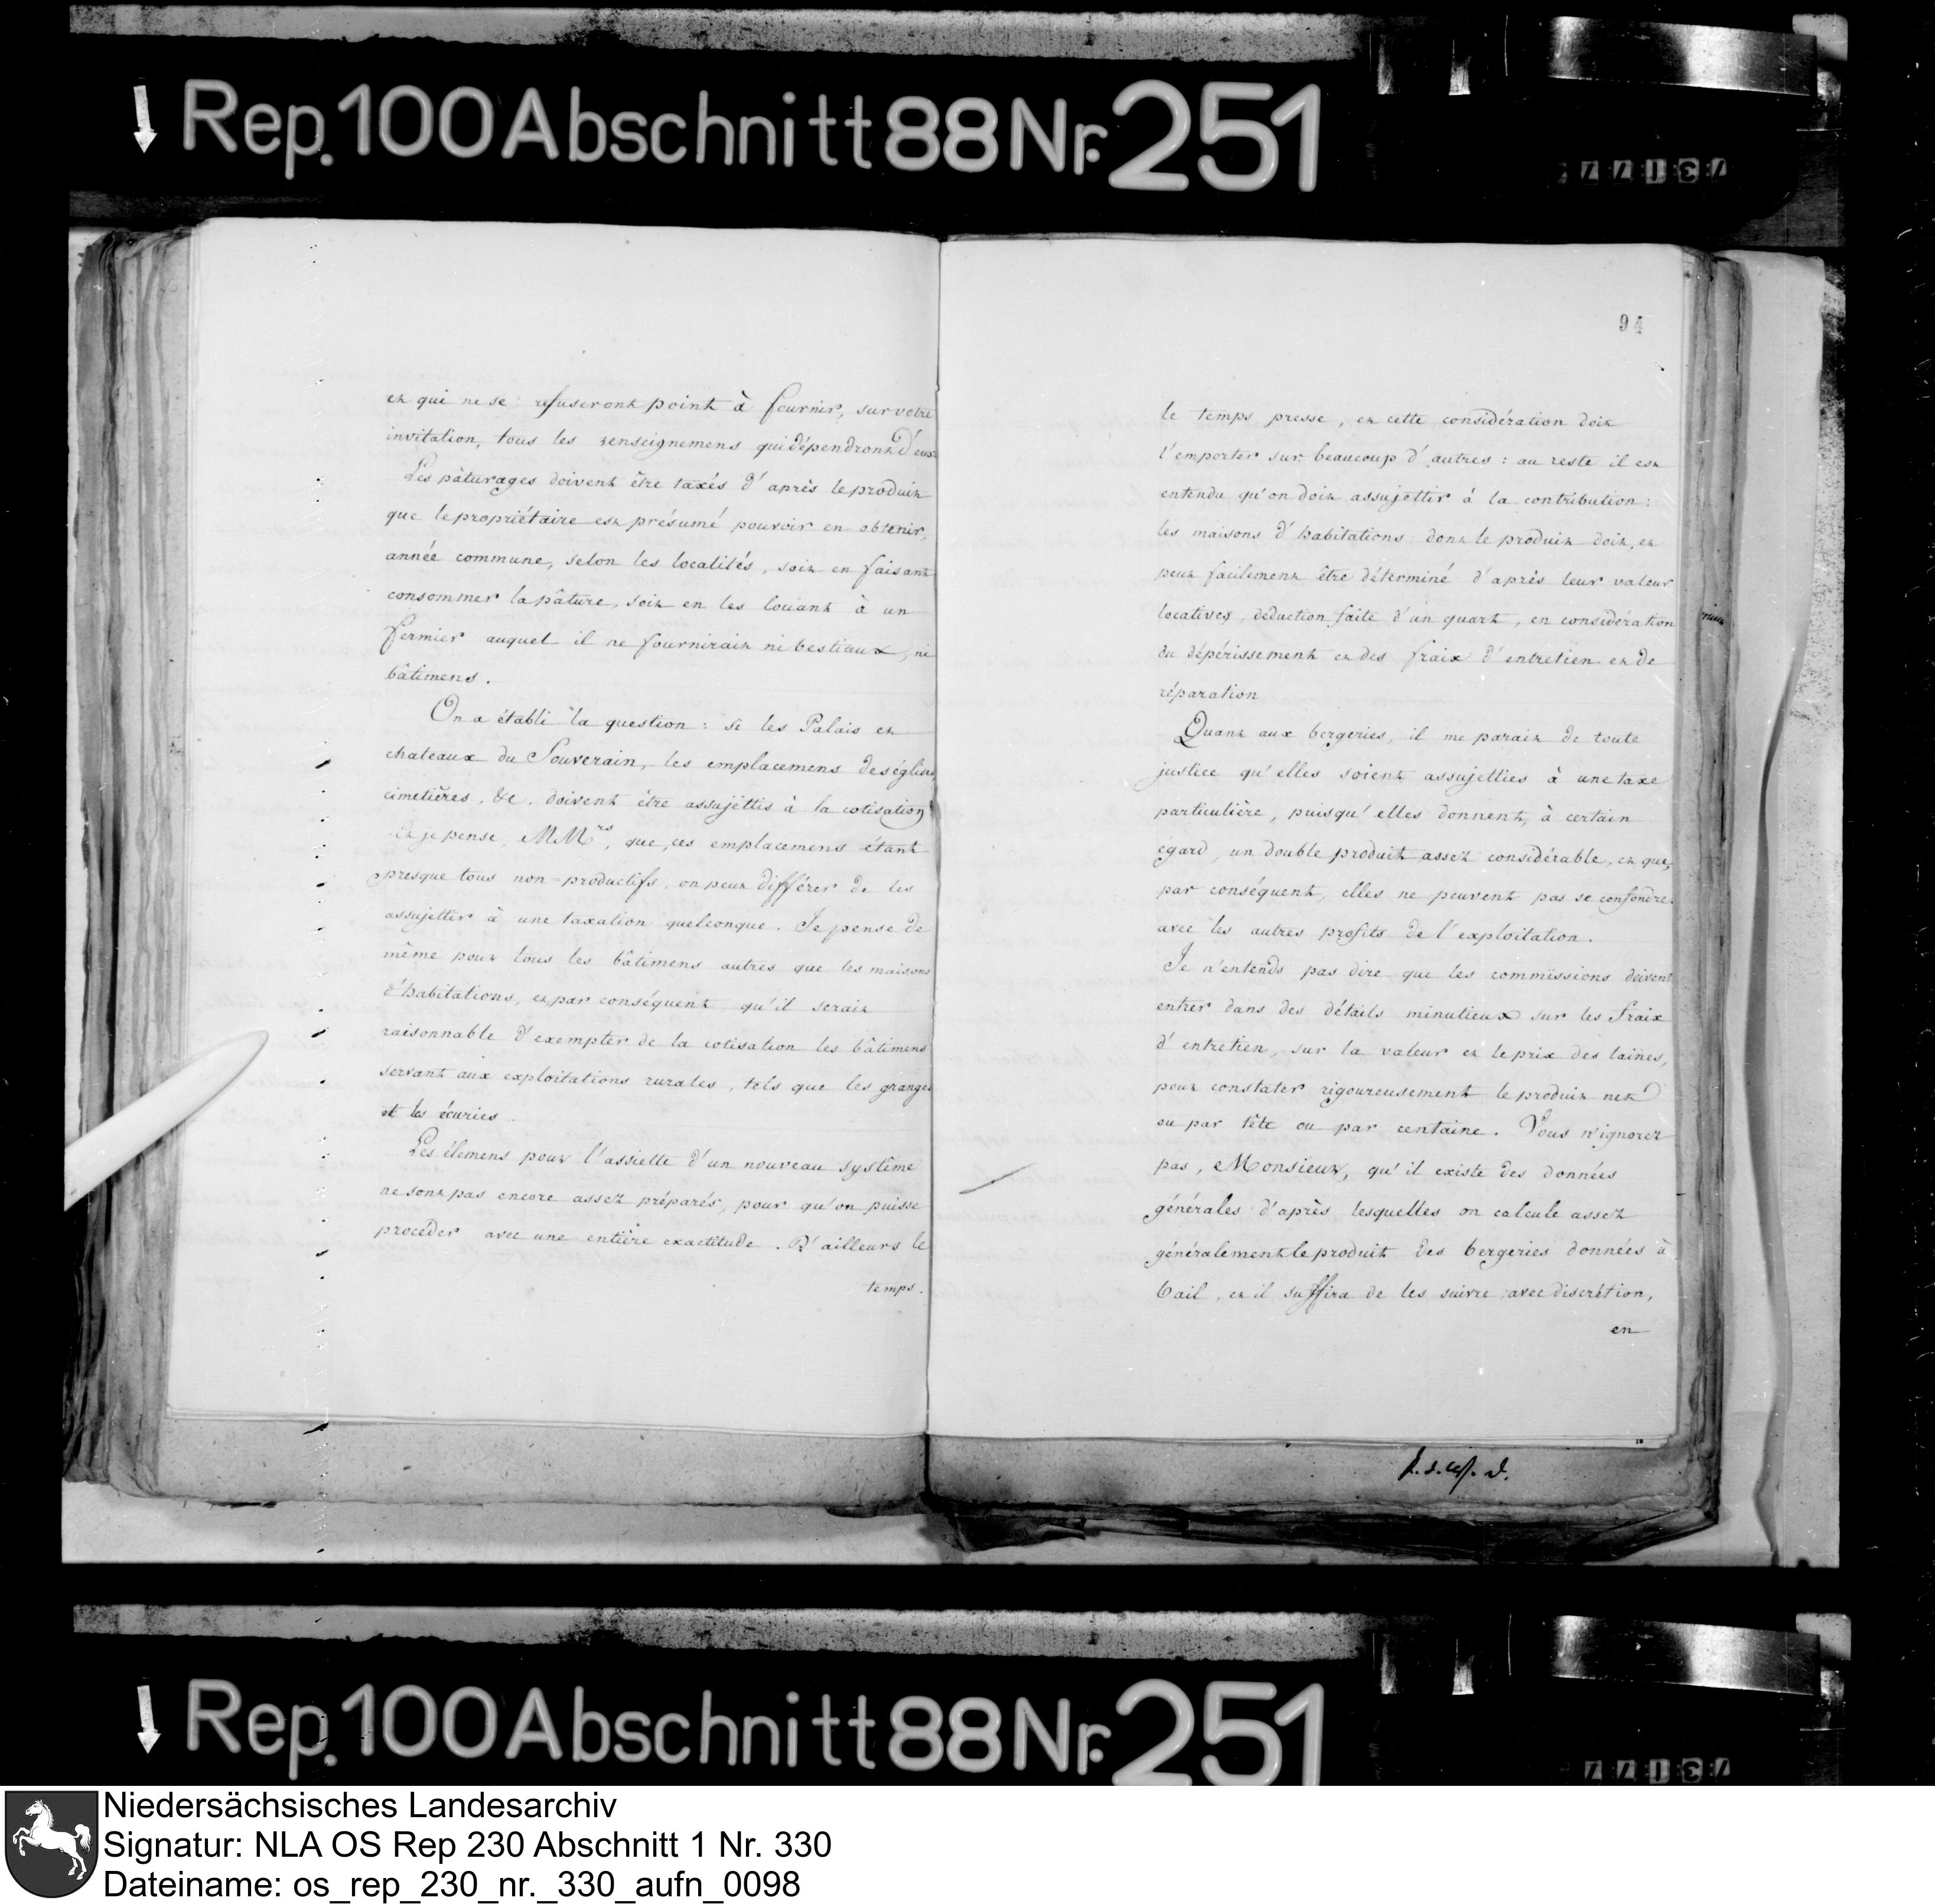 Rep. 100 Abschnitt 88 Nr. 251
et qui ne se refuseront point à fournir, sur votre
invitation, tous les renseignemens qui dépendront d'eux
Les pâturages doivent être taxés d'après le produit
que le propriétaire est présumé pouvoir en obtenir,
année commune, selon les localités, soit en faisant
consommer la pâture, soit en les louant à un
fermier auquel il ne fournirait ni bestiaux, ni
bâtimens.
On a établi la question : si les Palais et
chateaux du Souverain, les emplacemens des églises,
cimetières, &c. doivent être assujéttis à la cotisation
Et je pense, MMrs, que, ces emplacemens étant
presque tous non-productifs, on peut différer de les
assujettir à une taxation quelconque. Je pense de
même pour tous les bâtimens autres que les maisons
d'habitations, et par conséquent qu'il serait
raisonnable d'exempter de la cotisation les bâtimens
servant aux exploitations rurales, tels que les granges
et les écuries.
Les élemens pour l'assiette d'un nouveau système
ne sont pas encore assez préparés, pour qu'on puisse
proceder avec une entière exactitude. D'ailleurs le
temps.
94
le temps presse, et cette considération doit
l'emporter sur beaucoup d'autres : au reste il est
entendu qu'on doit assujettir à la contribution :
les maisons d'habitations dont le produit doit, et
peut facilement être déterminé d'après leur valeur
locatives, deduction faite d'un quart, en considération
du dépérissement et des fraix d'entretien et de
réparation
Quant aux bergeries, il me parait de toute
justice qu'elles soient assujetties à une taxe
particulière, puisqu'elles donnent, à certain
égard, un double produit assez considérable, et que,
par conséquent, elles ne peuvent pas se confondre
avec les autres profits de l'exploitation.
Je n'entends pas dire que les commissions doivent
entrer dans des détails minutieux sur les fraix
d'entretien, sur la valeur et le prix des laines,
pour constater rigoureusement le produit net
ou par tête ou par centaine. Vous n'ignorez
pas, Monsieur, qu'il existe des données
générales d'après lesquelles on calcule assez
généralement le produit des bergeries données à
bail, et il suffira de les suivre avec discrétion,
en
Rep. 100 Abschnitt 88 Nr. 251
Niedersächsisches Landesarchiv
Signatur: NLA OS Rep 230 Abschnitt 1 Nr. 330
Dateiname: os_rep_230_nr._330_aufn_0098